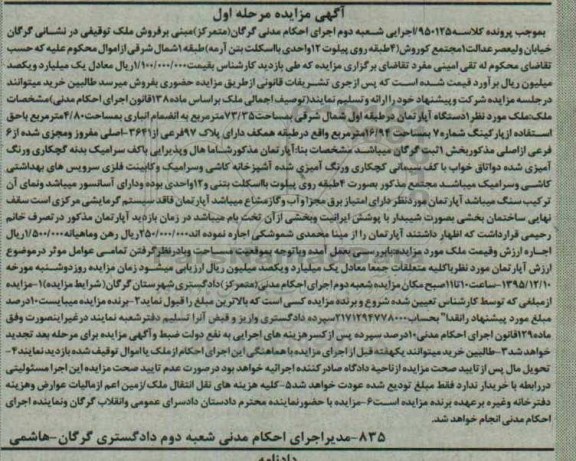 آگهی مزایده مرحله اول
بموجب پرونده کلاسه ۹۵۰۱۲۵/اجرایی شعبه دوم اجرای احکام مدنی گرگان(متمرکز)مبنی برفروش ملک توقیفی در نشانی گرگان
خیابان ولیعصر عدالت۱مجتمع کوروش(۴طبقه روی پیلوت ۱۲واحدی بااسکلت بتن آرمه)طبقه ۱شمال شرقی ازاموال محکوم علیه که حسب
تقاضای محکوم له تقی امینی مفرد تقاضای برگزاری مزایده که طی بازدید کارشناس بقیمت ۱/۱۰۰/۰۰۰/۰۰۰ریال معادل یک میلیارد ویکصد
میلیون ریال برآورد قیمت شده است که پس ازجری تشریفات قانونی ازطریق مزایده حضوری بفروش میرسد طالبین خرید میتوانند
درجلسه مزایده شرکت وپیشنهاد خود راارائه وتسلیم نمایند(توصیف اجمالی ملک براساس ماده ۱۳۸قانون اجرای احکام مدنی)مشخصات
ملک:ملک مورد نظر۱دستگاه آپارتمان درطبقه اول شمال شرقی بمساحت۷۳/۳۵مترمربع به انضمام انباری بمساحت۴/۸۰مترمربع باحق
استفاده ازپارکینگ شماره ۷ بمساحت ۱۶/۹۴مترمربع واقع درطبقه همکف دارای پلاک ۹۷فرعی از۳۶۴۱-اصلی مفروز ومجزی شده از۶
فرعی ازاصلی مذکوربخش ۱ثبت گرگان میباشد. مشخصات بنا:آپارتمان مذکورشامل هال وپذیرایی باکف سرامیک بدنه گچکاری ورنگ
آمیزی شده دواتاق خواب با کف سیمانی گچکاری ورنگ آمیزی شده آشپزخانه کاشی وسرامیک وکابینت فلزی سرویس های بهداشتی
کاشی وسرامیک میباشد مجتمع مذکور بصورت ۴طبقه روی پیلوت بااسکلت بتنی و۱۲واحدی بوده ودارای آسانسور میباشد ونمای آن
ترکیب سنگ میباشد آپارتمان موردنظر دارای امتیاز برق مجزا وآب وگازمشاع میباشد آپارتمان فاقد سیستم گرمایشی مرکزی است سقف
نهایی ساختمان بخشی بصورت شیبدار با پوشش ایرانیت وبخشی ازآن تخت بام میباشد در زمان بازدید آپارتمان مذکور در تصرف خانم
رحیمی قرارداشت که اظهار داشتند آپارتمان را از مینا محمدی شموشکی اجاره نموده اند ۲۵۰/۰۰۰/۰۰۰ریال رهن وماهیانه ۱/۵۰۰/۰۰۰ریال
اجاره ارزش وقیمت ملک مورد مزایده:بابررسی بعمل آمده وباتوجه بموقعیت مساحت وبادرنظرگرفتن تمامی عوامل موثر درموضوع
ارزش آپارتمان مورد نظرباکلیه متعلقات جمعا معادل یک میلیارد ویکصد میلیون ریال ارزیابی میشود زمان مزایده روزدوشنبه مورخه
۱۳۹۵/۱۲/۱۰-ساعت ۱۰تا۱۱صبح مکان مزایده شعبه دوم اجرای احکام مدنی(متمرکز)دادگستری شهرستان گرگان(شرایط مزایده)۱-مزایده
ازمبلغی که توسط کارشناس تعیین شده شروع و برنده مزایده کسی است که بالاترین مبلغ را قبول نماید۲-برنده مزایده میبایست۱۰درصد
مبلغ مورد پیشنهاد رانقدا" بحساب۲۱۷۱۲۹۴۷۷۸۰۰۰سپرده دادگستری واریز و فیض آنرا تسلیم دفترشعبه نمایند درغیراینصورت وفق
ماده۱۲۹قانون اجرای احکام مدنی۱۰درصد سپرده پس از کسرهزینه های اجرایی به نفع دولت ضبط وآگهی مزایده برای مرحله بعد تجدید
خواهدشد۳-طالبین خرید میتوانند یکهفته قبل ازاجرای مزایده باهماهنگی این اجرای احکام ازملک یااموال توقیف شده بازدید نمایند۴-
تحویل مال پس از تایید صحت مزایده ازناحیه دادگاه صادرکننده اجرائیه خواهد بود.در صورت عدم تایید صحت مزایده این اجرا مسئولیتی
دررابطه با خریدار ندارد فقط مبلغ تودیع شده عودت خواهد شد۵-کلیه هزینه های نقل انتقال ملک/زمین اعم ازمالیات عوارض وهزینه
دفترخانه وغیره برعهده برنده مزایده است۶-مزایده با حضورنماینده محترم دادستان دادسرای عمومی وانقلاب گرگان ونماینده اجرای
احکام مدنی انجام خواهد شد.
۸۳۵-مدیراجرای احکام مدنی شعبه دوم دادگستری گرگان-هاشمی
دادنامه